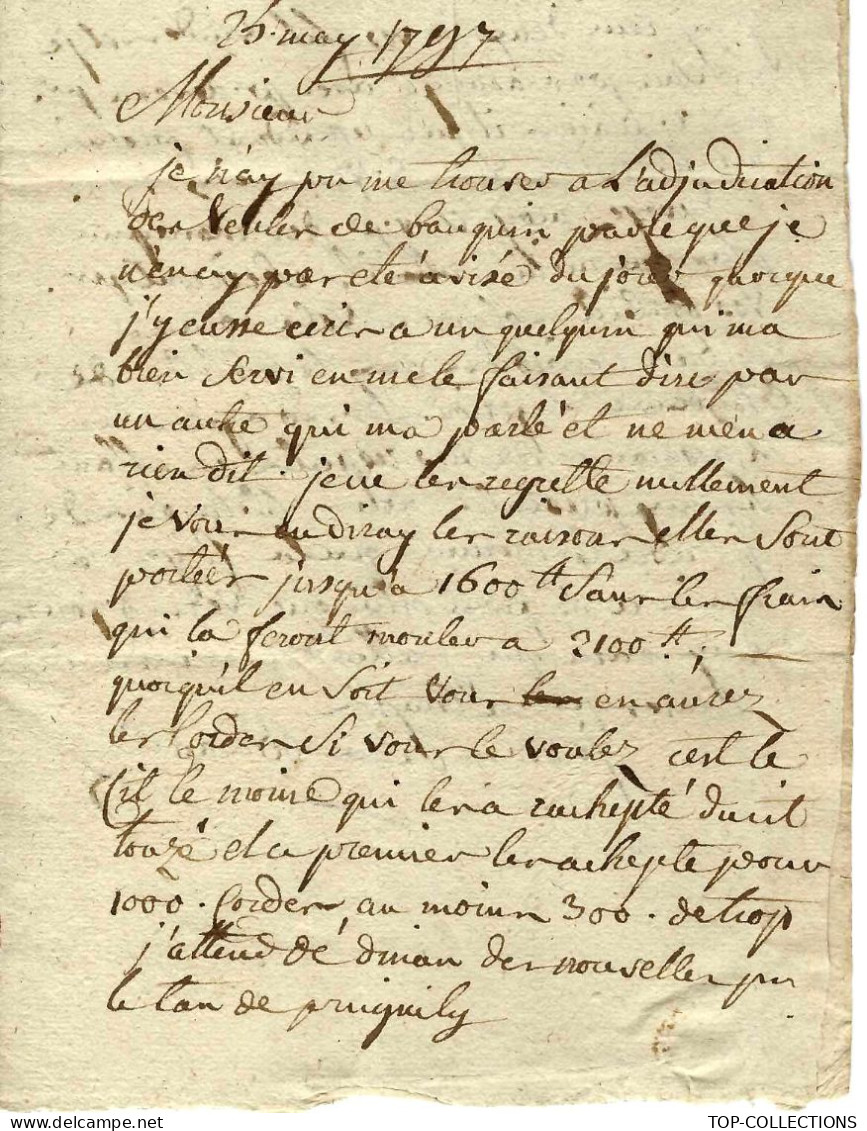 25 may 1797
Monsieur
je n'ay pu me trouver a L'adjudication
des Ventes de bauquin parce que je
n'en ay pas eté avisé du jour quoique
j'y eusse ecris a un quelquin qui ma
bien Servi en me le faisant dire par
un autre qui ma parlé et ne men a
rien dit. je ne les regrette nullement
je vous en diray les raisons elles Sont
portées jusqu'a 1600 ₶ Sans les frais
qui la feront monter a 2100 ₶,
quoiqu'il en Soit Vous en aurez
les Cordes Si vous le voulez cest le
Cit le moine qui les a rachepté du cit
touzé et ce premier les achepte pour
1000. Cordes, au moins 300. de trop
j'attend dé dinan des nouvelles pr
le tan de
TOP-COLLECTIONS